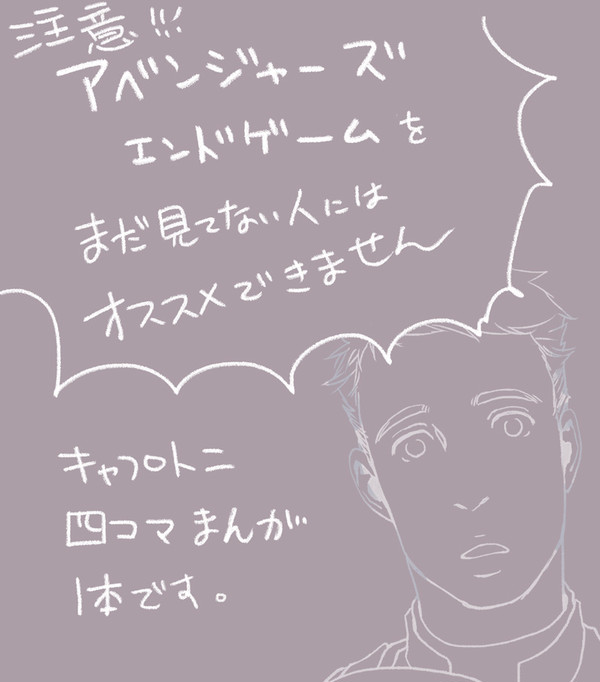 注意!!!
アベンジャーズ
エンドゲームを
まだ見てない人には
オススメできません
キャプトニ
四コマまんが
1本です。